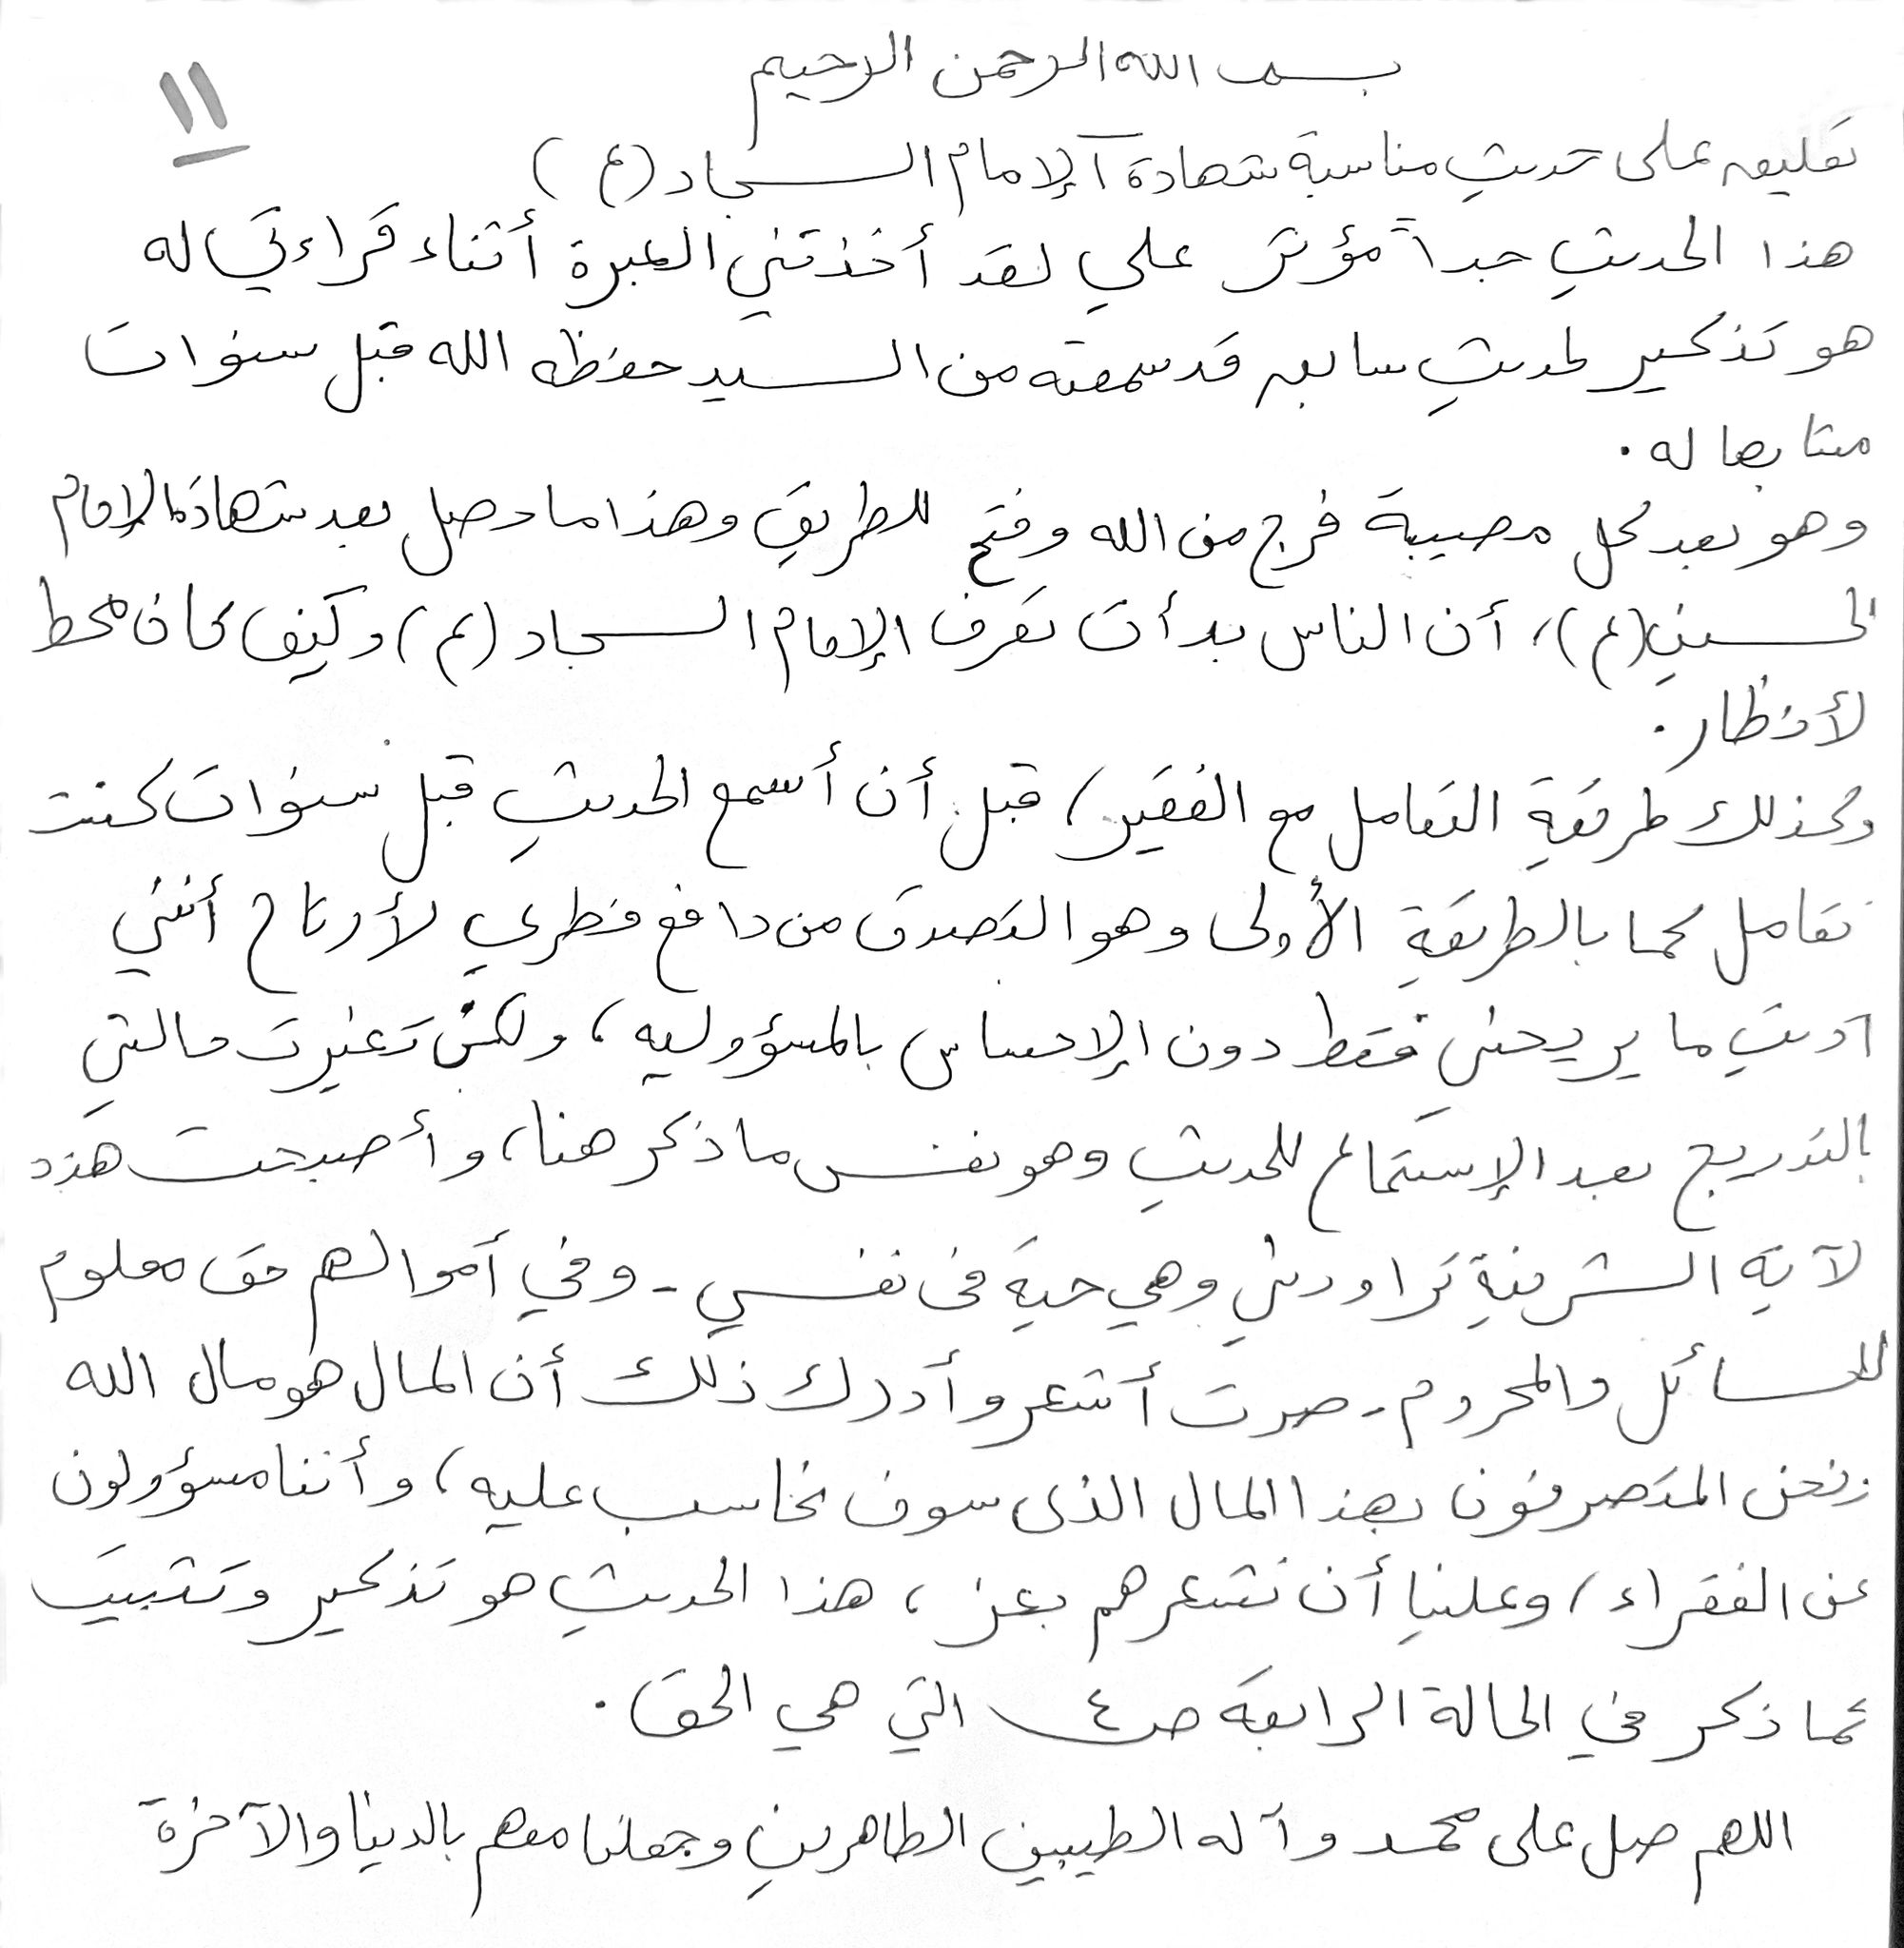 بسم الله الرحمن الرحيم
١١
تعليق على حديث مناسبة شهادة الإمام السجاد (ع)
هذا الحديث جداً مؤثر علي لقد أخذتني العبرة أثناء قراءتي له
هو تذكير لحديث سابق قد سمعته من السيد حفظه الله قبل سنوات
مشابها له .
وهو بعد كل مصيبة فرج من الله وفتح للطريق وهذا ما حصل بعد شهادة الإمام
الحسين (ع)، أن الناس بدأت تعرف الإمام السجاد (ع) وكيف كان محط
لأنظار .
وكذلك طريقة التعامل مع الفقير، قبل أن أسمع الحديث قبل سنوات كنت
تعامل كما بالطريقة الأولى وهو التصدق من دافع فطري لأرتاح أنني
أديت ما يريحني فقط دون الإحساس بالمسؤوليه، ولكن تغيرت حالتي
بالتدريج بعد الإستماع للحديث وهو نفس ما ذكر هنا، وأصبحت هذه
لآية الشريفة تراودني وهي حية في نفسي - وفي أموالهم حق معلوم
للسائل والمحروم - صرت أشعر وأدرك ذلك أن المال هو مال الله
ونحن المتصرفون بهذا المال الذى سوف نحاسب عليه، وأننا مسؤولون
عن الفقراء، وعلينا أن نشعرهم بعز، هذا الحديث هو تذكير وتثبيت
كما ذكر في الحالة الرابعة ص٤ التي هي الحق .
اللهم صل على محمد وآله الطيبين الطاهرين وجعلنا معهم بالدينا والآخرة